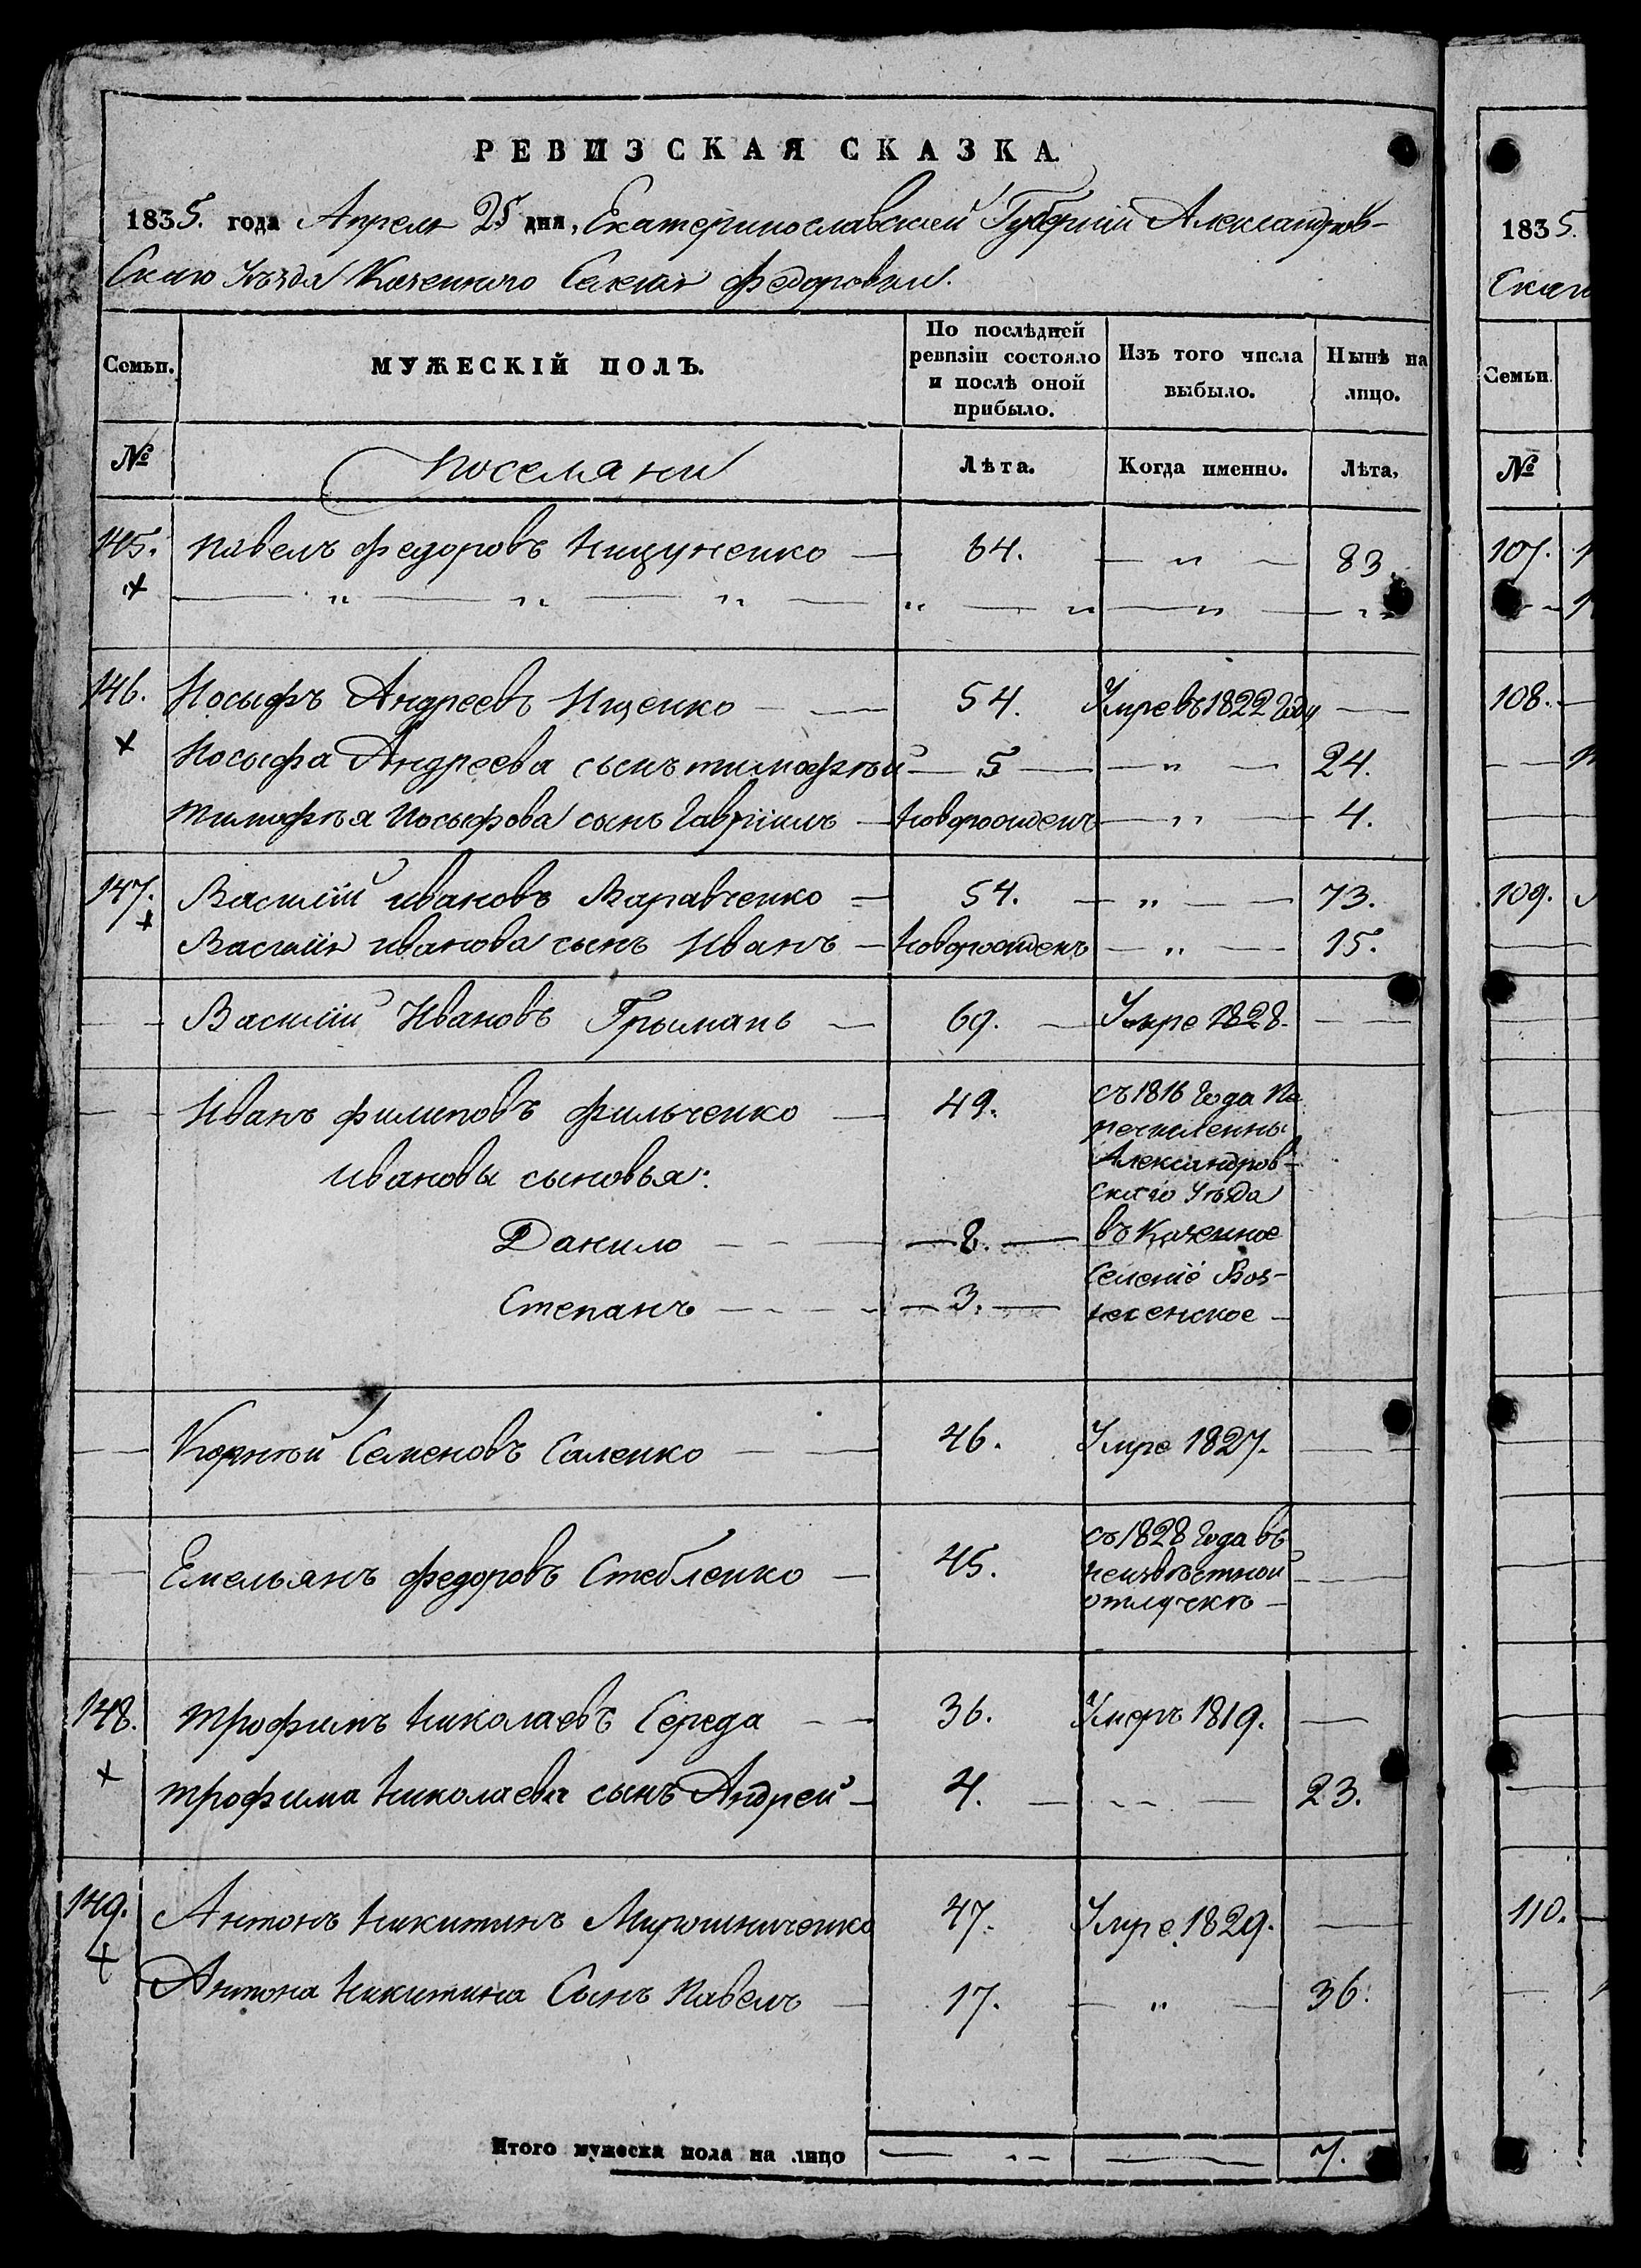 РЕВИЗСКАЯ СКАЗКА.
1835. года Апреля 25 дня, Екатеринославской Губернiи Александров-
скаго Уѣзда Казеннаго Селенiя Федоровки.
Семьи.
МУЖЕСКIЙ ПОЛЪ.
По послѣдней ревизiи состояло и послѣ оной прибыло.
Изъ того числа выбыло.
Нынѣ на лицо.
№
поселяни
Лѣта.
Когда именно.
Лѣта,
145. Павелъ Федоровъ Нищуненко — 64. — „ — 83.
+ — „ — „ — „ — „ — „ — „ — „
146. Иосыфъ Андреевъ Ищенко — 54. Умре въ 1822 году —
+ Иосыфа Андреева сынъ тимофѣй — 5 — „ — 24.
тимофѣя Иосыфова сынъ Гаврiилъ — новорожденъ — „ — 4.
147. Василiй ивановъ Варавченко — 54. — „ — 73.
+ Василiя иванова сынъ Иванъ — новорожденъ — „ — 15.
— Василiй Ивановъ Грымань — 69. — Умре 1828. —
— Иванъ филиповъ фильченко — 49. съ 1816 года Пе
речисленны
Александров-
скаго Уѣзда
ивановы сыновья:
Данило — 8. — въ Казенное
Селенiе Воз-
Степанъ — 3. — несенское —
— Корнѣй Семеновъ Саленко — 46. Умре 1827. —
— Емельянъ федоровъ Стебленко — 45. съ 1828 года въ
неизвѣстной
отлучкѣ —
148. трофимъ Николаевъ Середа — 36. Умеръ 1819. —
+ трофима Николаева сынъ Андрей — 4. — „ — 23.
149. Антонъ Никитинъ Мирошниченко 47. Умре 1829. —
+ Антона Никитина Сынъ Павелъ — 17. — „ — 36.
Итого мужеска пола на лицо — „ — 7.
1835.
Скаго
Семьи.
№
107.
108.
109.
110.